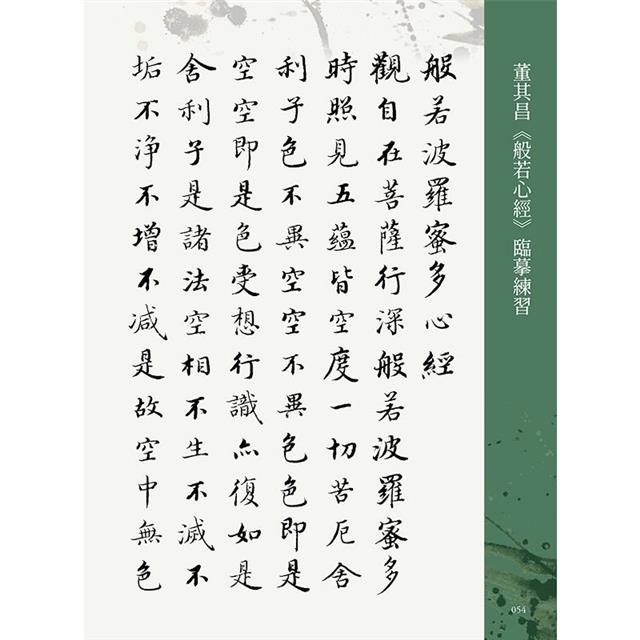 董其昌《般若心經》臨摹練習
般若波羅蜜多心經
觀自在菩薩行深般若波羅蜜多
時照見五蘊皆空度一切苦厄舍
利子色不異空空不異色色即是
空空即是色受想行識亦復如是
舍利子是諸法空相不生不滅不
垢不淨不增不減是故空中無色
054